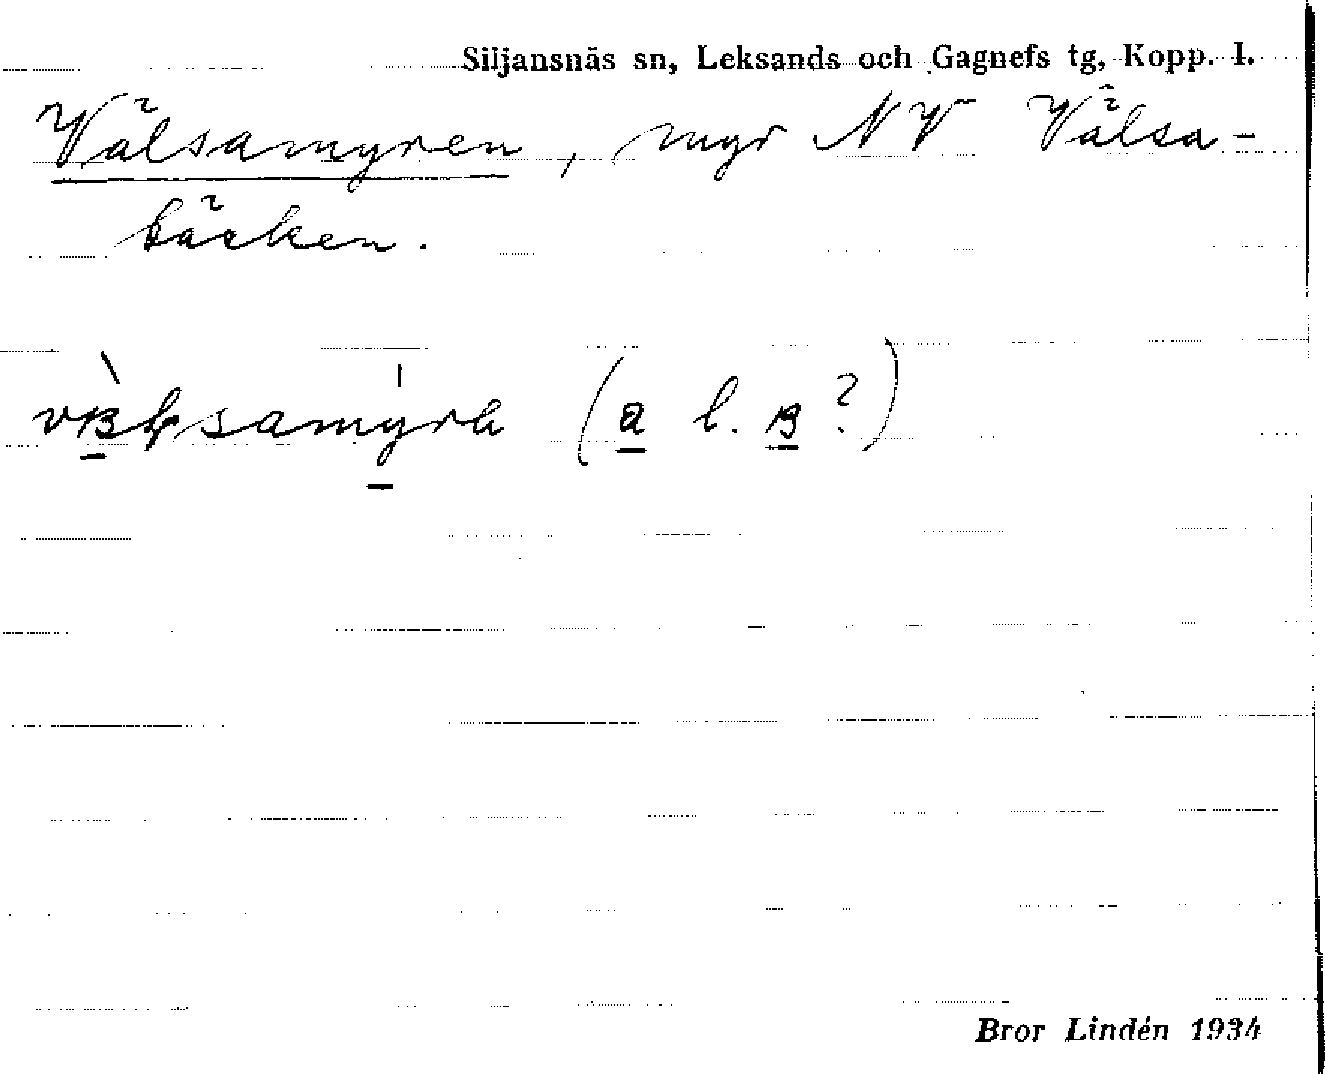 Siljansnäs sn, Leksands och Gagnefs tg, Kopp. l.
Välsamyren, myr NV Välsa-
bäcken.
(a l. ?)
Bror Lindén 1934